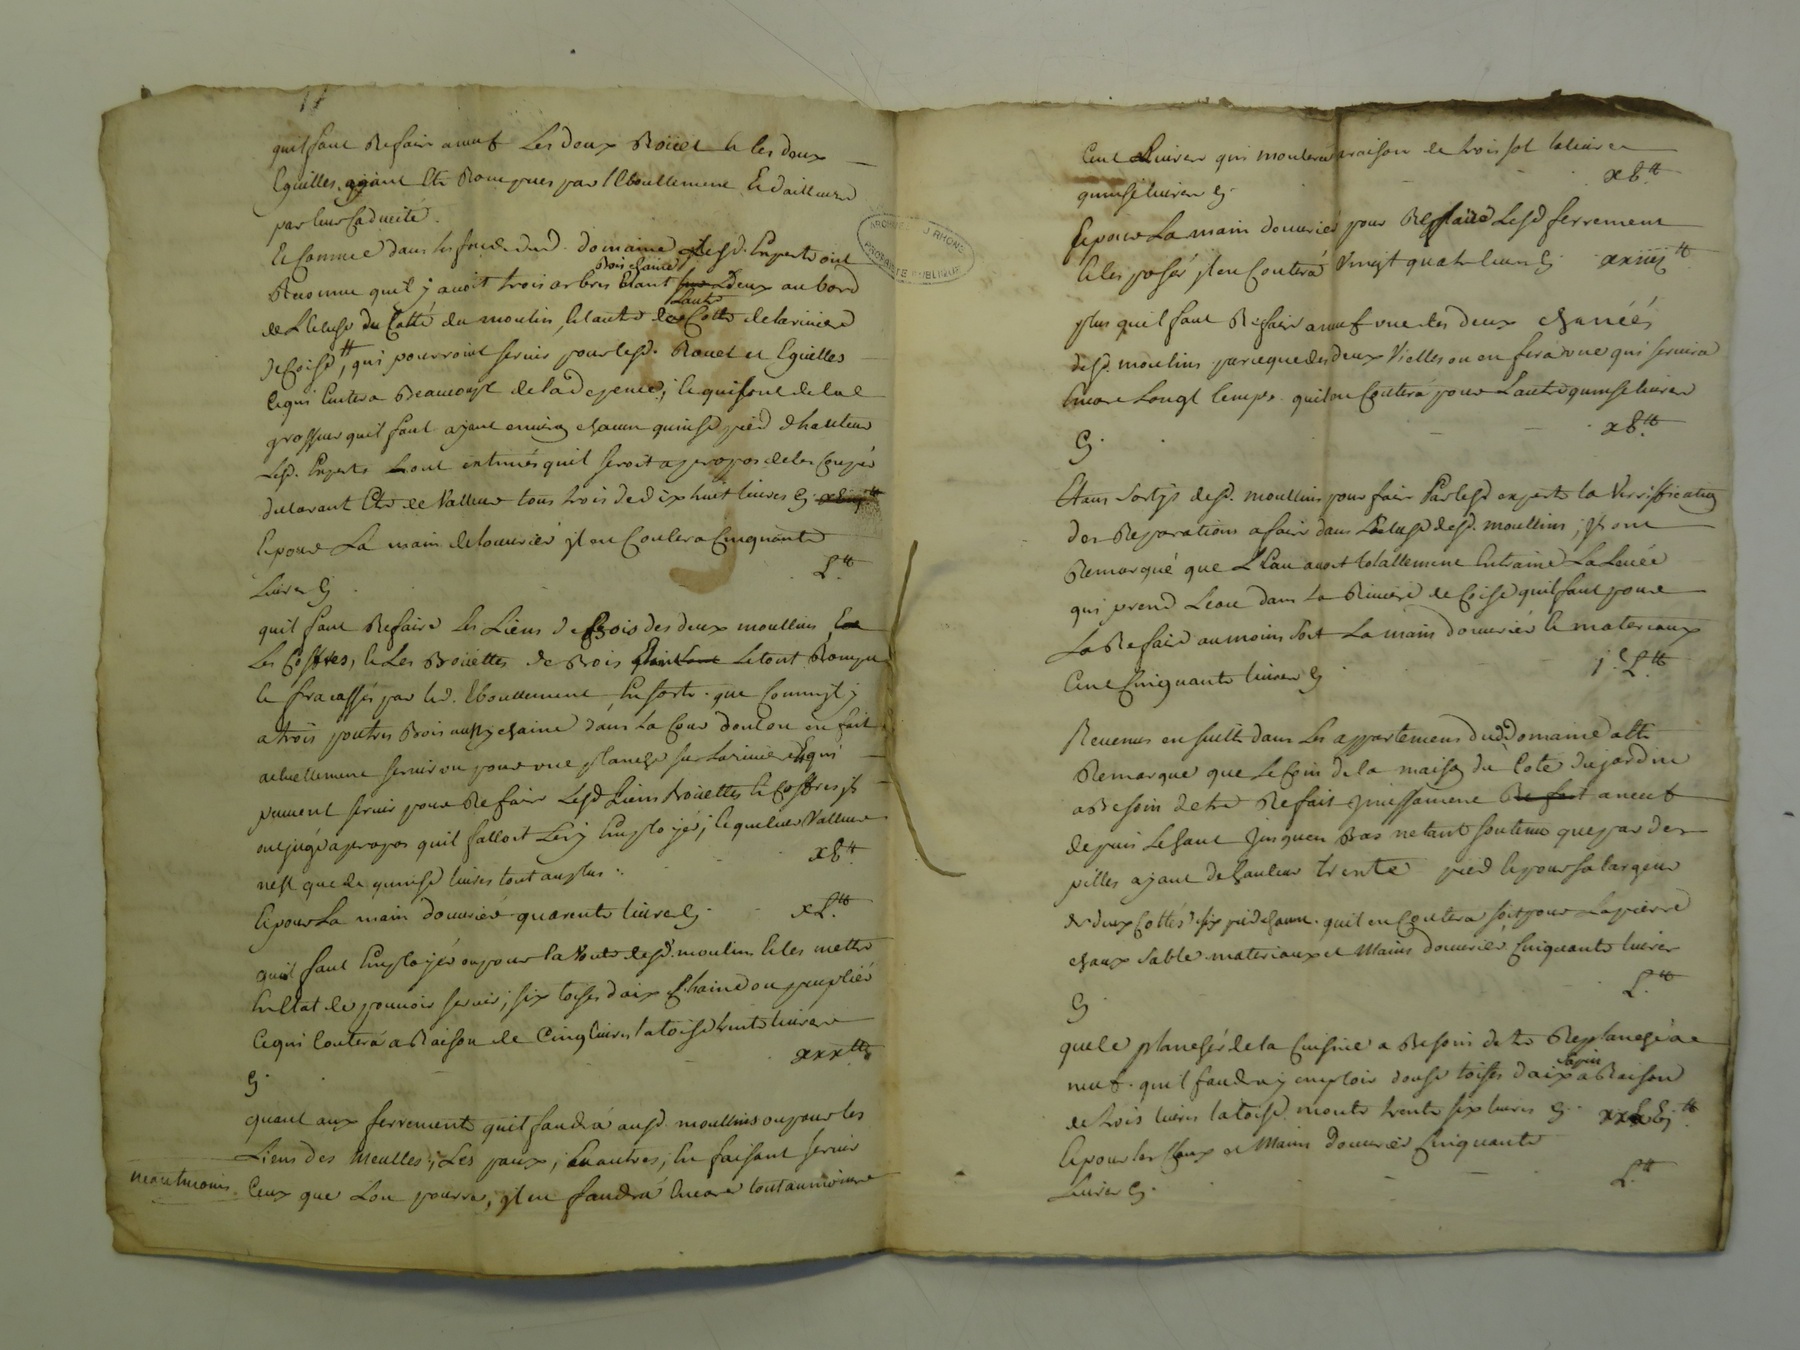 quil faut Refaire aneuf Les deux Roüet & les deux
Eguilles ayant Ete Rompues par l'Eboullement Et dailleurs
par leur Caducité.
Et comme dans les fonds dud. domaine Lesd. Experts ont
Bois chaine
Reconnu quil y avoit trois arbres Etant deux au bord
Lautre
de L'Ecluse du Cotté du moulin, & lautre Cotté de la riviere
de Coise, qui pourroint servir pour lesd. Rouet et Eguilles
Ce qui Evitera Beaucoupt de la depence, & qui sont de la
grosseur quil faut ayant environ chacun quinse pied dhauteur
Lesd. Experts Lont estimés quil seroit apropos de les Couper
declarant Etre de Valleur tous trois de dix huit livres Cy
Et pour La main de louvrier il en Coutera Cinquante
L.tt
Livres Cy
quil faut Refaire Les Liens de Bois des deux moullins,
Les Coffres, & Les Boüettes de Bois Letout Rompu
& fracassés par led. Eboullement, En sorte que Comme il y
a trois poutres Bois aussy chaine dans la Cour dont on en fait
actuellement servir un pour une planche sur la riviere & qui
peuvent servir pour Refaire Lesd Liens Bouettes & Coffres ils
ont jugé apropos quil falloit Lesy Employer, Ce que leur Valleur
x8.tt
nest que de quinse livres tout au plus.
Et pour La main douvrier quarente livres Cy xL.tt
quil faut Employer ou pour la Voute desd. moulins & les mettre
En Etat de pouvoir servir, six toises daix Chaine ou peuplier
Ce qui Coutera a Raison de Cinq livres la toise trente livres
xxx.tt
Cy
quant aux ferrements quil faudrá ausd. moullins ou pour les
Liens des Meulles, Les paux, & autres, En faisant servir
Ceux que Lon pourra, il en faudrá Encore tout aumoins
neantmoins
Cent Livres qui montera araison de trois sol la livre
x8.tt
quinse livres Cy
Et pour La main douvrier pour Refaire Lesd ferrement
& les poser il en Couterá Vingt quatre livres Cy xxiiij.tt
plus quil faut Refaire aneuf une des deux chanéés
desd. moulins parceque des deux Vielles on en ferá une qui servira
Encore Longt temps. quil en Coutera pour Lautre quinse livres
x8.tt
Cy
Etans Sortys desd. moullins pour faire Par lesd experts la Verriffication
des Reparations afaire dans Lecluse desd. moullins, ils ont
Remarqué que L'Eau avoit totallement Entrainé La Levée
qui prend Leau dans La Riviere de Coise quil faut pour
La Refaire aumoins soit La main douvrier & materiaux
j.C L.tt
Cent Cinquante livres Cy
Revenus en suitte dans Les appartemens dud. Domaine a Ete
Remarque que Le Coin de la maison du Cote du jardin
a Besoin detre Refait Refait aneuf
depuis Lehaut Jusquen Bas netant soutenu que par des
pilles ayant de hauteur trente pied & pour sa largeur
de deux Cottés six pied chacun. quil en Coutera soit pour La pierre
chaux sable materiaux et Mains douvrier Cinquante livres
L.tt
Cy
que le plancher de la Cuisine a Besoin detre Replancher a
sapin
neuf. quil faudra y emploir douse toises daix a Raison
de trois livres la toise. monte trente six livres Cy
Et pour les Cloux et Mains douvrier Cinquante
L.tt
Livres Cy.
ARCHIVES DU RHONE
PROPRIÉTÉ PUBLIQUE